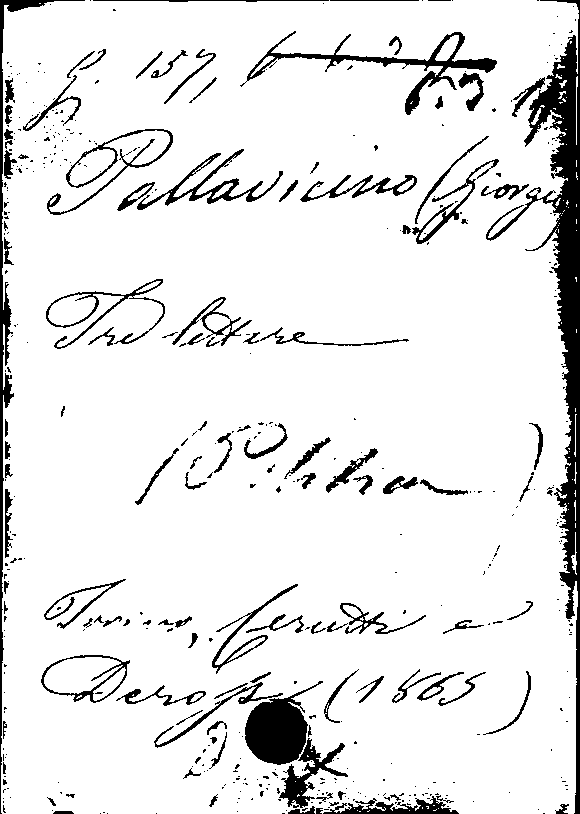 G. 157,
Pallavicino (Giorgio)
Tre lettere
(Politica)
Torino, Cerutti e
Derossi (1865)